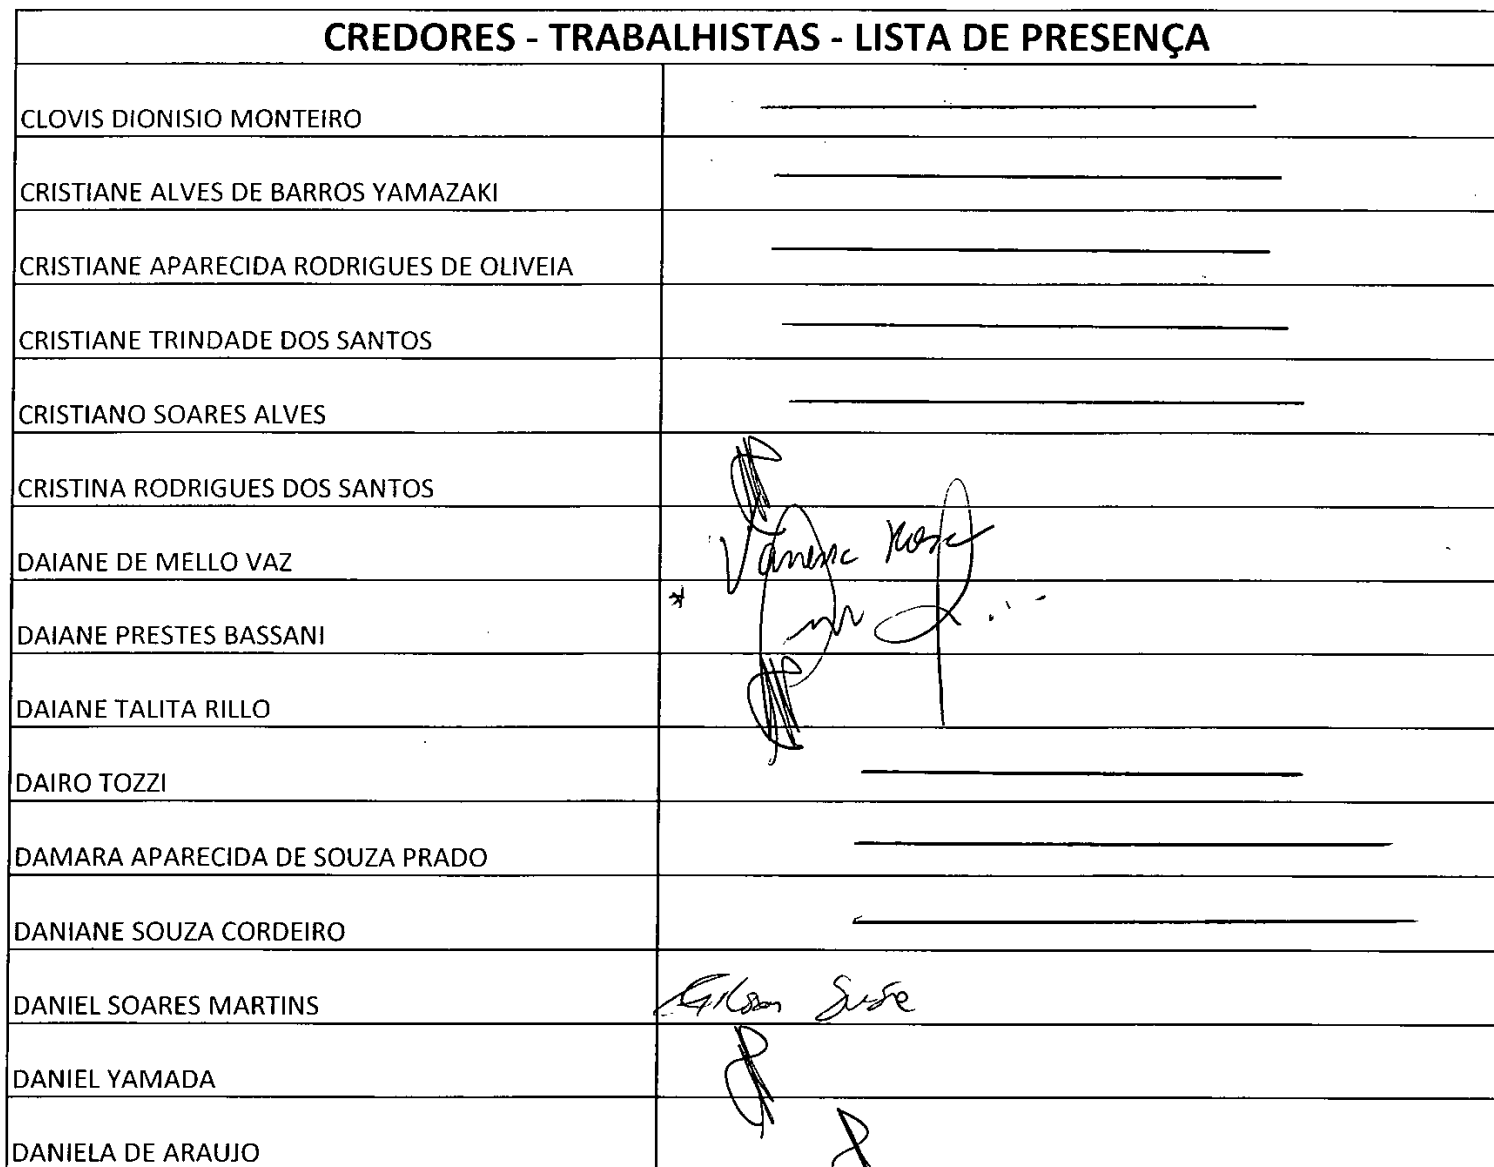 CREDORES - TRABALHISTAS - LISTA DE PRESENÇA
CLOVIS DIONISIO MONTEIRO
CRISTIANE ALVES DE BARROS YAMAZAKI
CRISTIANE APARECIDA RODRIGUES DE OLIVEIA
CRISTIANE TRINDADE DOS SANTOS
CRISTIANO SOARES ALVES
CRISTINA RODRIGUES DOS SANTOS
DAIANE DE MELLO VAZ
DAIANE PRESTES BASSANI
DAIANE TALITA RILLO
DAIRO TOZZI
DAMARA APARECIDA DE SOUZA PRADO
DANIANE SOUZA CORDEIRO
DANIEL SOARES MARTINS
DANIEL YAMADA
DANIELA DE ARAUJO